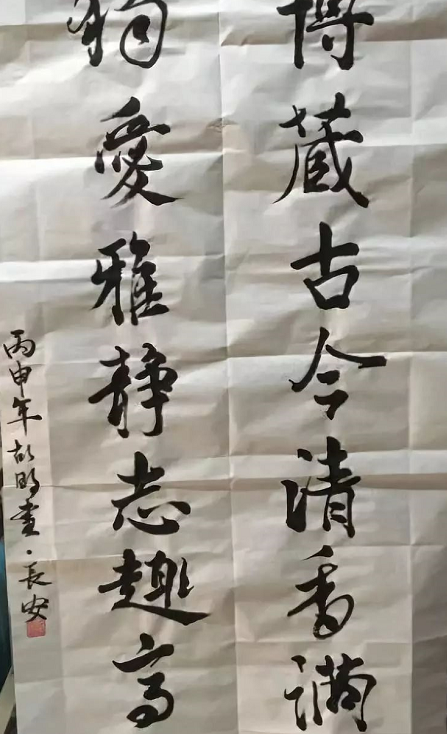 博藏古今清香满
独爱雅静志趣高
丙申年胡明书·长安